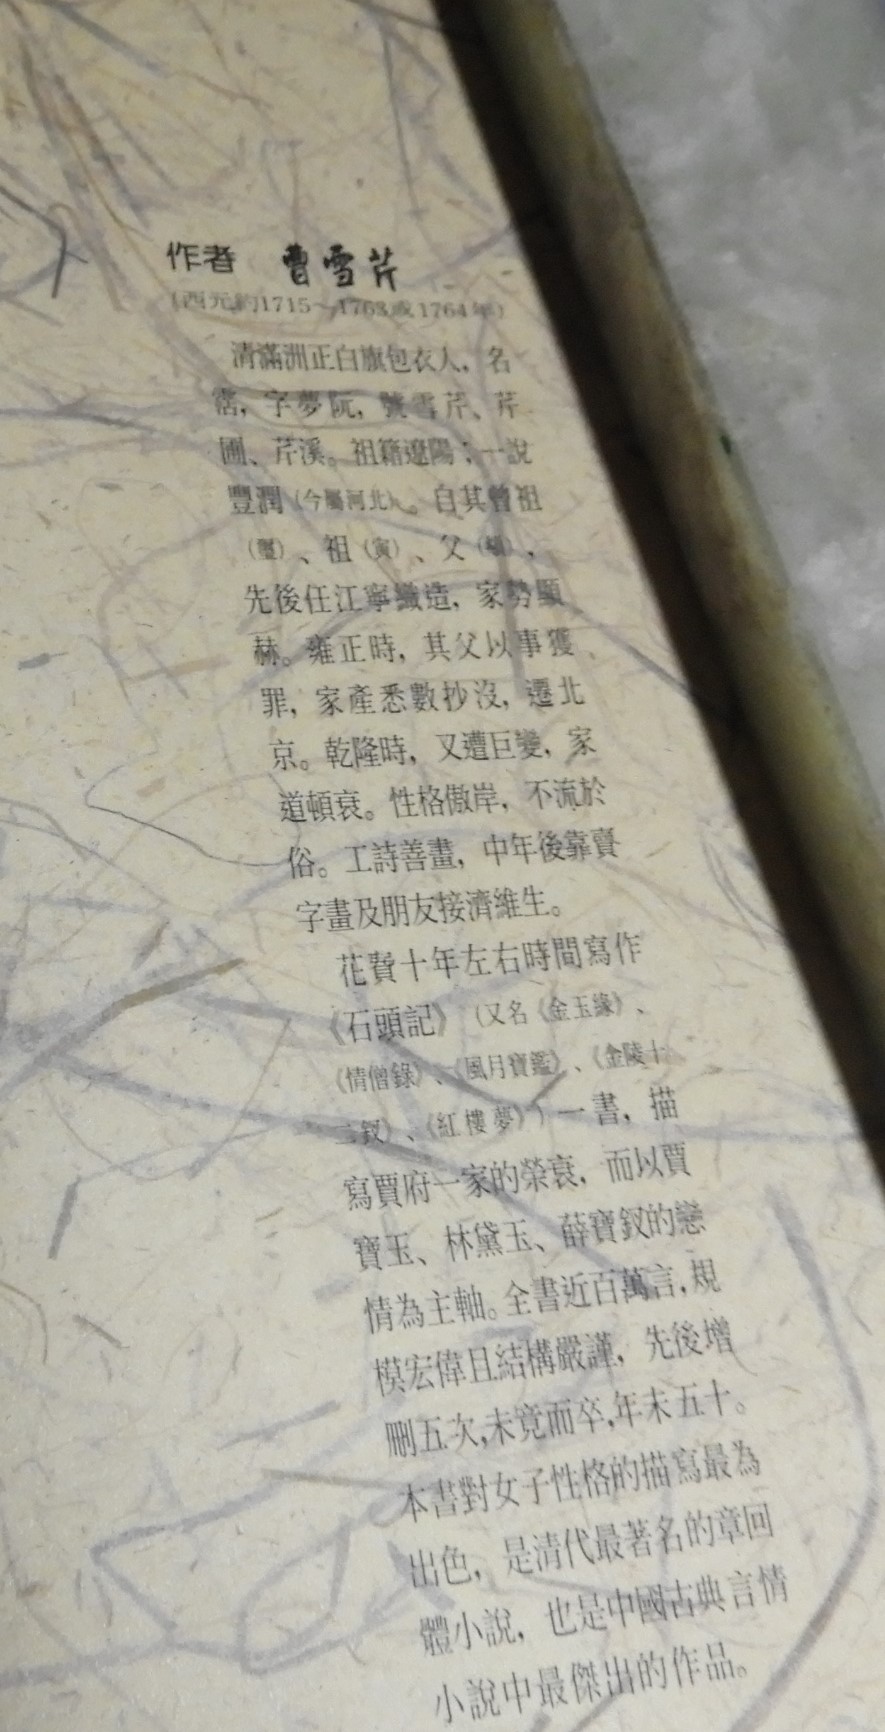 作者 曹雪芹
(西元約1715～1763或1764年)
清滿洲正白旗包衣人，名
霑，字夢阮，號雪芹、芹
圃、芹溪。祖籍遼陽；一說
豐潤（今屬河北）。自其曾祖
（璽）、祖（寅）、父（頫），
先後任江寧織造，家勢顯
赫。雍正時，其父以事獲
罪，家產悉數抄沒，遷北
京。乾隆時，又遭巨變，家
道頓衰。性格傲岸，不流於
俗。工詩善畫，中年後靠賣
字畫及朋友接濟維生。
花費十年左右時間寫作
《石頭記》（又名《金玉緣》、
《情僧錄》、《風月寶鑑》、《金陵十
二釵》、《紅樓夢》）一書，描
寫賈府一家的榮衰，而以賈
寶玉、林黛玉、薛寶釵的戀
情為主軸。全書近百萬言，規
模宏偉且結構嚴謹，先後增
刪五次，未竟而卒，年未五十。
本書對女子性格的描寫最為
出色，是清代最著名的章回
體小說，也是中國古典言情
小說中最傑出的作品。